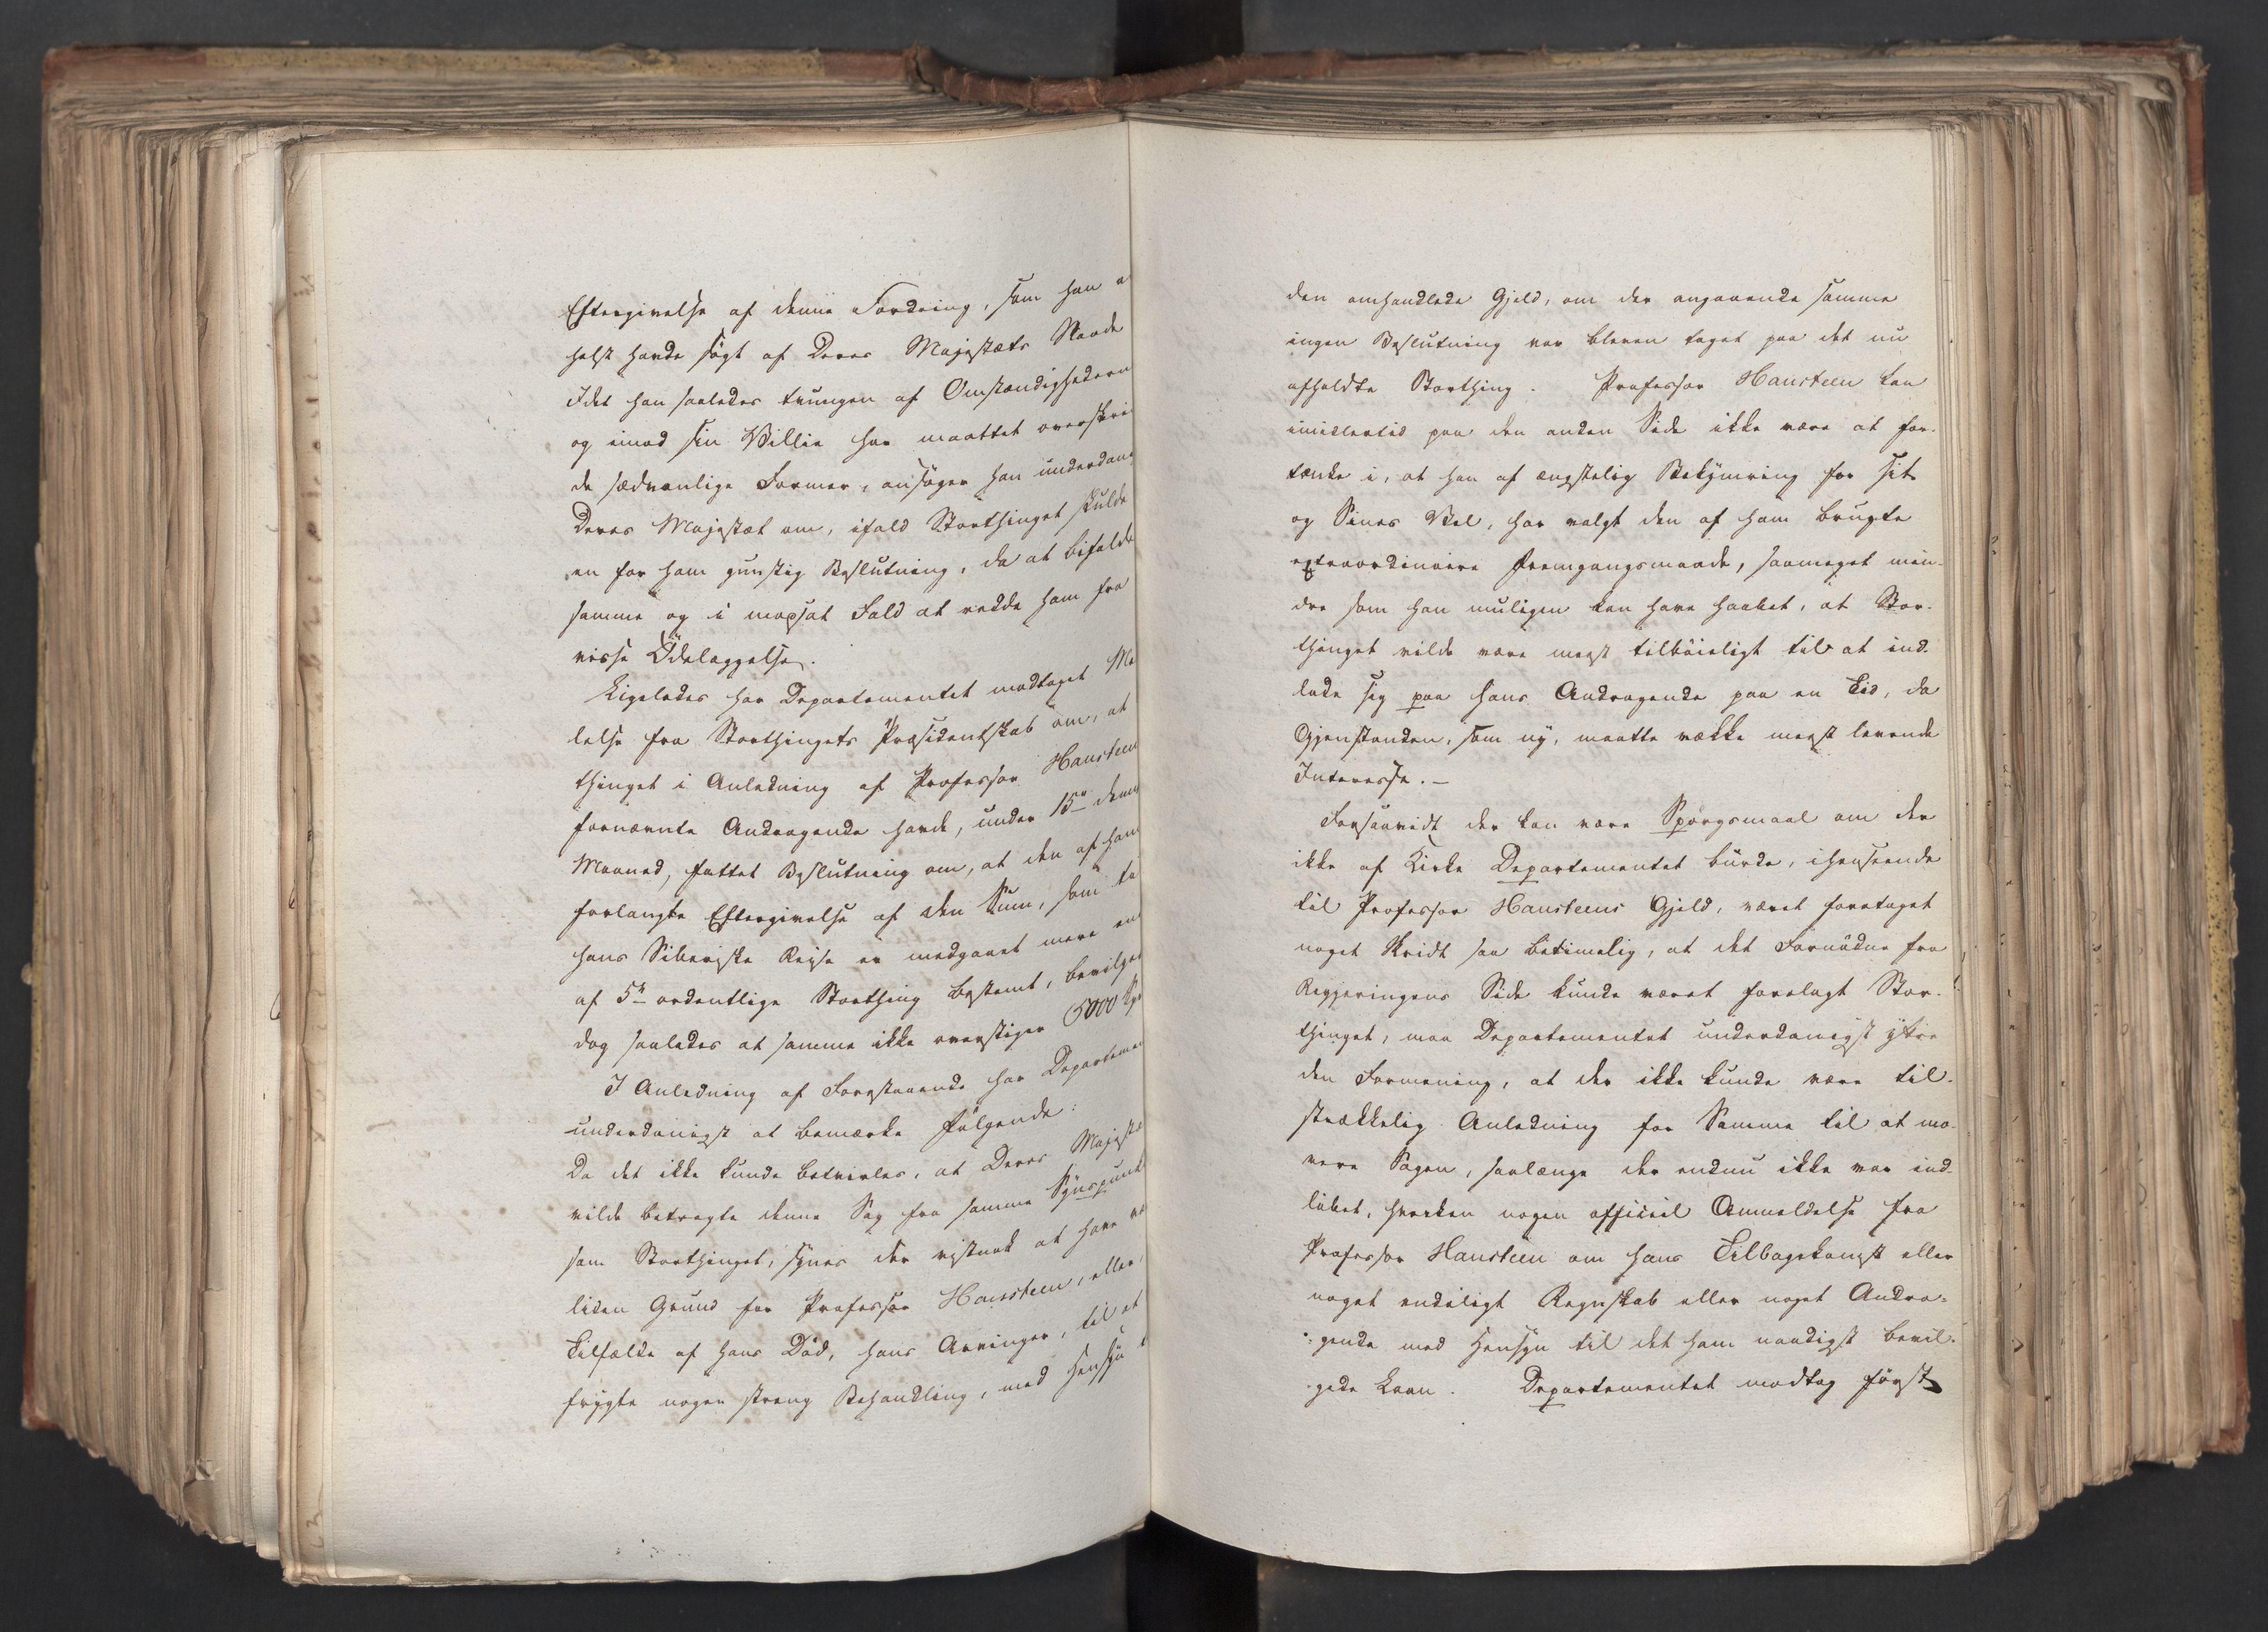 Eftergivelse af denne Fordring, som han a
helst havde søgt af Deres Majestæts Naade
Idet han saaledes tvungen af Omstændighedern
og imod sin Villie har maattet overskri
de sædvanlige Former, ansøger han underdan
Deres Majestæt om, ifald Storthinget skulde
en for ham gunstig Beslutning, da at bifalde
samme og i modsat Fald at redde ham fra
visse Ödelæggelse.
Ligeledes har Departementet modtaget Me
lelse fra Storthingets Præsidentskab om, at
thinget i Anledning af Professor Hansteen
fornævnte Andragende havde, under 15de denn
Maaned, fattet Beslutning om, at den af ham
forlangte Eftergivelse af den Sum, som ti
hans Siberiske Reise er medgaaet mere en
af 5te ordentlige Storthing bestemt, bevilge
dog saaledes at samme ikke overstiger 6000 Sp
I Anledning af Forestaaende har Departeme
underdanigst at bemærke følgende:
Da det ikke kunde betvivles, at Deres Majestæ
vilde betragte denne Sag fra samme Synspunk
som Storthinget, synes der vistnok at have væ
liden Grund for Professor Hansteen, eller
Tilfælde af hans Død, hans Arvinger, til at
frygte nogen streng Behandling, med Hensyn
den omhandlede Gjeld, om der angaaende samme
ingen Beslutning var bleven taget paa det nu
afholdte Storthing. Professor Hansteen kan
imidlertid paa den anden Side ikke være at for-
tænke i, at han af ængstelig Bekymring for sit
og Sines Vel, har valgt den af ham brugte
extraordinaire Fremgangsmaade, saameget min-
dre som han muligen kan have haabet, at Stor-
thinget vilde være meest tilbøieligt til at ind-
lade sig paa hans Andragende paa en Tid, da
Gjenstanden, som ny, maatte vække meest levende
Interesse. —
Forsaavidt der kan være Spørgsmaal om der
ikke af Kirke Departementet burde, ihenseende
til Professor Hansteens Gjeld, været foretaget
noget Skridt saa betimelig, at det Fornødne fra
Regjeringens Side kunde været forelagt Stor-
thinget, maa Departementet underdanigst ytre
den Formening, at der ikke kunde være til-
strækkelig Anledning for Samme til at mo-
vere Sagen, saalænge der endnu ikke var ind-
løbet, hverken nogen officiel Anmeldelse fra
Professor Hansteen om hans Tilbagekomst eller
noget endeligt Regnskab eller noget Andra-
gende med Hensyn til det ham naadigst bevil-
gede Laan. Departementet modtog først